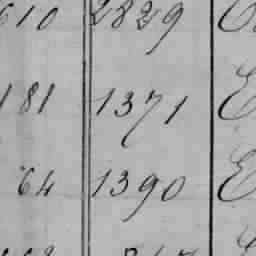 610 2829
181 1371 E
64 1390 E